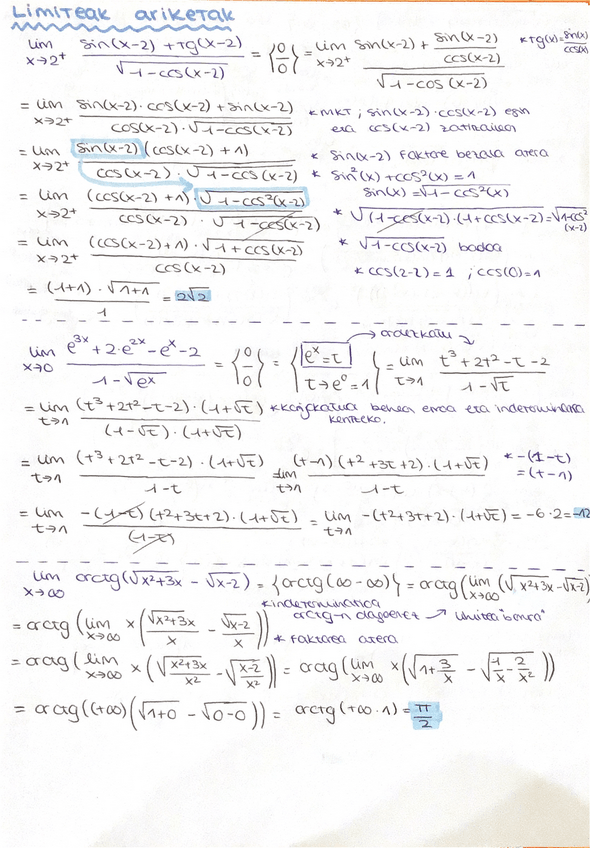 Limiteak ariketak
lim x→2⁺ (sin(x-2) + tg(x-2)) / √(1-cos(x-2)) = {0/0} = lim x→2⁺ (sin(x-2) + sin(x-2)/cos(x-2)) / √(1-cos(x-2)) * tg(x) = sin(x)/cos(x)
= lim x→2⁺ (sin(x-2)·cos(x-2) + sin(x-2)) / (cos(x-2)·√(1-cos(x-2))) * MKT ; sin(x-2)·cos(x-2) egin
eta cos(x-2) zatitzailean
= lim x→2⁺ (sin(x-2)(cos(x-2)+1)) / (cos(x-2)·√(1-cos(x-2))) * sin(x-2) faktore bezala atera
* sin²(x)+cos²(x)=1
sin(x)=√(1-cos²(x))
= lim x→2⁺ ((cos(x-2)+1)·√(1-cos²(x-2))) / (cos(x-2)·√(1-cos(x-2))) * √((1-cos(x-2)·(1+cos(x-2)) = √(1-cos²(x-2))
= lim x→2⁺ ((cos(x-2)+1)·√(1+cos(x-2))) / cos(x-2) * √(1-cos(x-2)) badoa
* cos(2-2)=1 ; cos(0)=1
= ((1+1)·√(1+1)) / 1 = 2√2
lim x→0 (e³ˣ+2·e²ˣ-eˣ-2) / (1-√eˣ) = {0/0} = {eˣ=t t→e⁰=1} → ordezkatu = lim t→1 (t³+2t²-t-2) / (1-√t)
= lim t→1 ((t³+2t²-t-2)·(1+√t)) / ((1-√t)·(1+√t)) * konjokatua behea eta indeterminazioa
kentzeko.
= lim t→1 ((t³+2t²-t-2)·(1+√t)) / (1-t) lim t→1 ((t-1)(t²+3t+2)·(1+√t)) / (1-t) * -(1-t)
=(t-1)
= lim t→1 (-(1-t)(t²+3t+2)·(1+√t)) / (1-t) = lim t→1 -(t²+3t+2)·(1+√t) = -6·2 = -12
lim x→∞ arctg(√(x²+3x) - √(x-2)) = {arctg(∞-∞)} = arctg(lim x→∞ (√(x²+3x) - √(x-2))
* indeterminazioa
arctg-n dagoenez → limitea "barrura"
= arctg(lim x→∞ x(√(x²+3x)/x - √(x-2)/x)) * faktorea atera
= arctg(lim x→∞ x(√((x²+3x)/x²) - √((x-2)/x²)) = arctg(lim x→∞ x(√(1+3/x) - √(1/x-2/x²)))
= arctg((+∞)(√(1+0) - √(0-0))) = arctg(+∞·1) = π/2